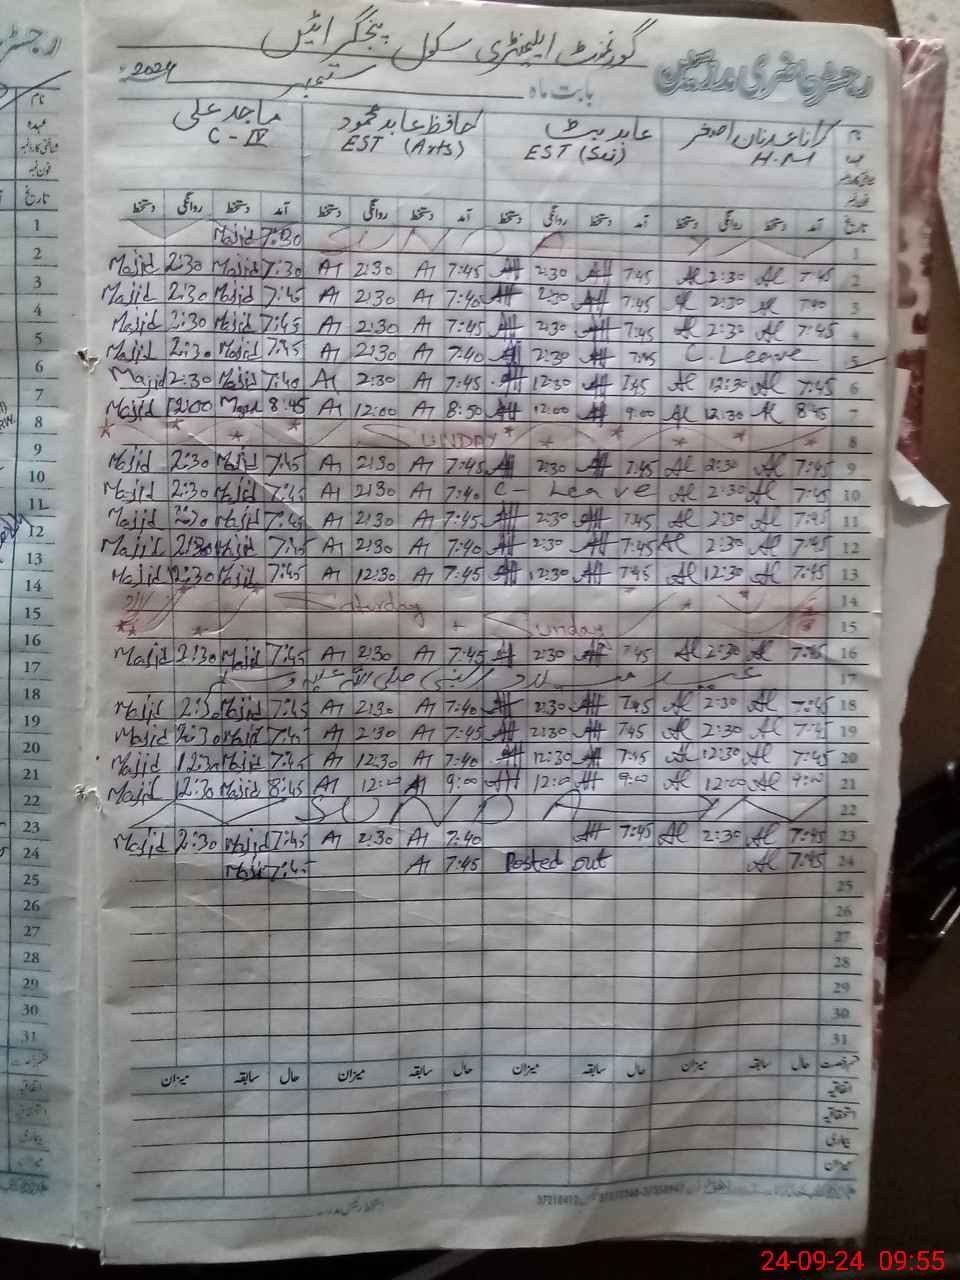 گورنمنٹ ایلیمنٹری سکول
رجسٹر حاضری مدرسین
بابت ماہ ستمبر 2024ء
نام رانا عدنان اصغر عابد بٹ حافظ عابد محمود ماجد علی
عہدہ H.M EST (Sci) EST (Arts) C-IV
تاریخ آمد دستخط روانگی دستخط آمد دستخط روانگی دستخط آمد دستخط روانگی دستخط آمد دستخط روانگی دستخط
Majid 7:30 SUNDAY 1
Majid 2:30 Majid 7:30 A1 2:30 A1 7:45 AH 2:30 AH 7:45 Al 2:30 Al 7:45 2
Majid 2:30 Majid 7:45 A1 2:30 A1 7:40 AH 2:30 AH 7:45 Al 2:30 Al 7:40 3
Majid 2:30 Majid 7:45 A1 2:30 A1 7:45 AH 2:30 AH 7:45 Al 2:30 Al 7:45 4
Majid 2:30 Majid 7:45 A1 2:30 A1 7:40 AH 2:30 AH 7:45 C. Leave 5
Majid 2:30 Majid 7:40 A1 2:30 A1 7:45 AH 12:30 AH 7:45 Al 12:30 Al 7:45 6
Majid 12:00 Majid 8:45 A1 12:00 A1 8:50 AH 12:00 AH 9:00 Al 12:30 Al 8:45 7
SUNDAY 8
Majid 2:30 Majid 7:45 A1 2:30 A1 7:45 AH 2:30 AH 7:45 Al 2:30 Al 7:45 9
Majid 2:30 Majid 7:45 A1 2:30 A1 7:40 C- Leave Al 2:30 Al 7:45 10
Majid 2:30 Majid 7:45 A1 2:30 A1 7:45 AH 2:30 AH 7:45 Al 2:30 Al 7:45 11
Majid 2:30 Majid 7:45 A1 2:30 A1 7:40 AH 2:30 AH 7:45 Al 2:30 Al 7:45 12
Majid 12:30 Majid 7:45 A1 12:30 A1 7:45 AH 12:30 AH 7:45 Al 12:30 Al 7:45 13
Saturday 14
Sunday 15
Majid 2:30 Majid 7:45 A1 2:30 A1 7:45 AH 2:30 AH 7:45 Al 2:30 Al 7:45 16
عید میلاد النبی صلی اللہ علیہ وسلم 17
Majid Majid 7:45 A1 2:30 A1 7:40 AH 2:30 AH 7:45 Al 2:30 Al 7:45 18
Majid 2:30 Majid 7:45 A1 2:30 A1 7:45 AH 2:30 AH 7:45 Al 2:30 Al 7:45 19
Majid 12:30 Majid 7:45 A1 12:30 A1 7:40 AH 12:30 AH 7:45 Al 12:30 Al 7:45 20
Majid 12:30 Majid 8:45 A1 12:00 A1 9:00 AH 12:00 AH 9:00 Al 12:00 Al 9:00 21
SUNDAY 22
Majid 2:30 Majid 7:45 A1 2:30 A1 7:40 AH 7:45 Al 2:30 Al 7:45 23
Majid 7:45 A1 7:45 Posted out Al 7:45 24
25
26
27
28
29
30
31
حال سابقہ میزان حال سابقہ میزان حال سابقہ میزان حال سابقہ میزان
اتفاقیہ
استحقاقیہ
بیماری
میزان
نام
عہدہ
شناختی کارڈ نمبر
فون نمبر
تاریخ
1
2
3
4
5
6
7
8
9
10
11
12
13
14
15
16
17
18
19
20
21
22
23
24
25
26
27
28
29
30
31
24-09-24 09:55